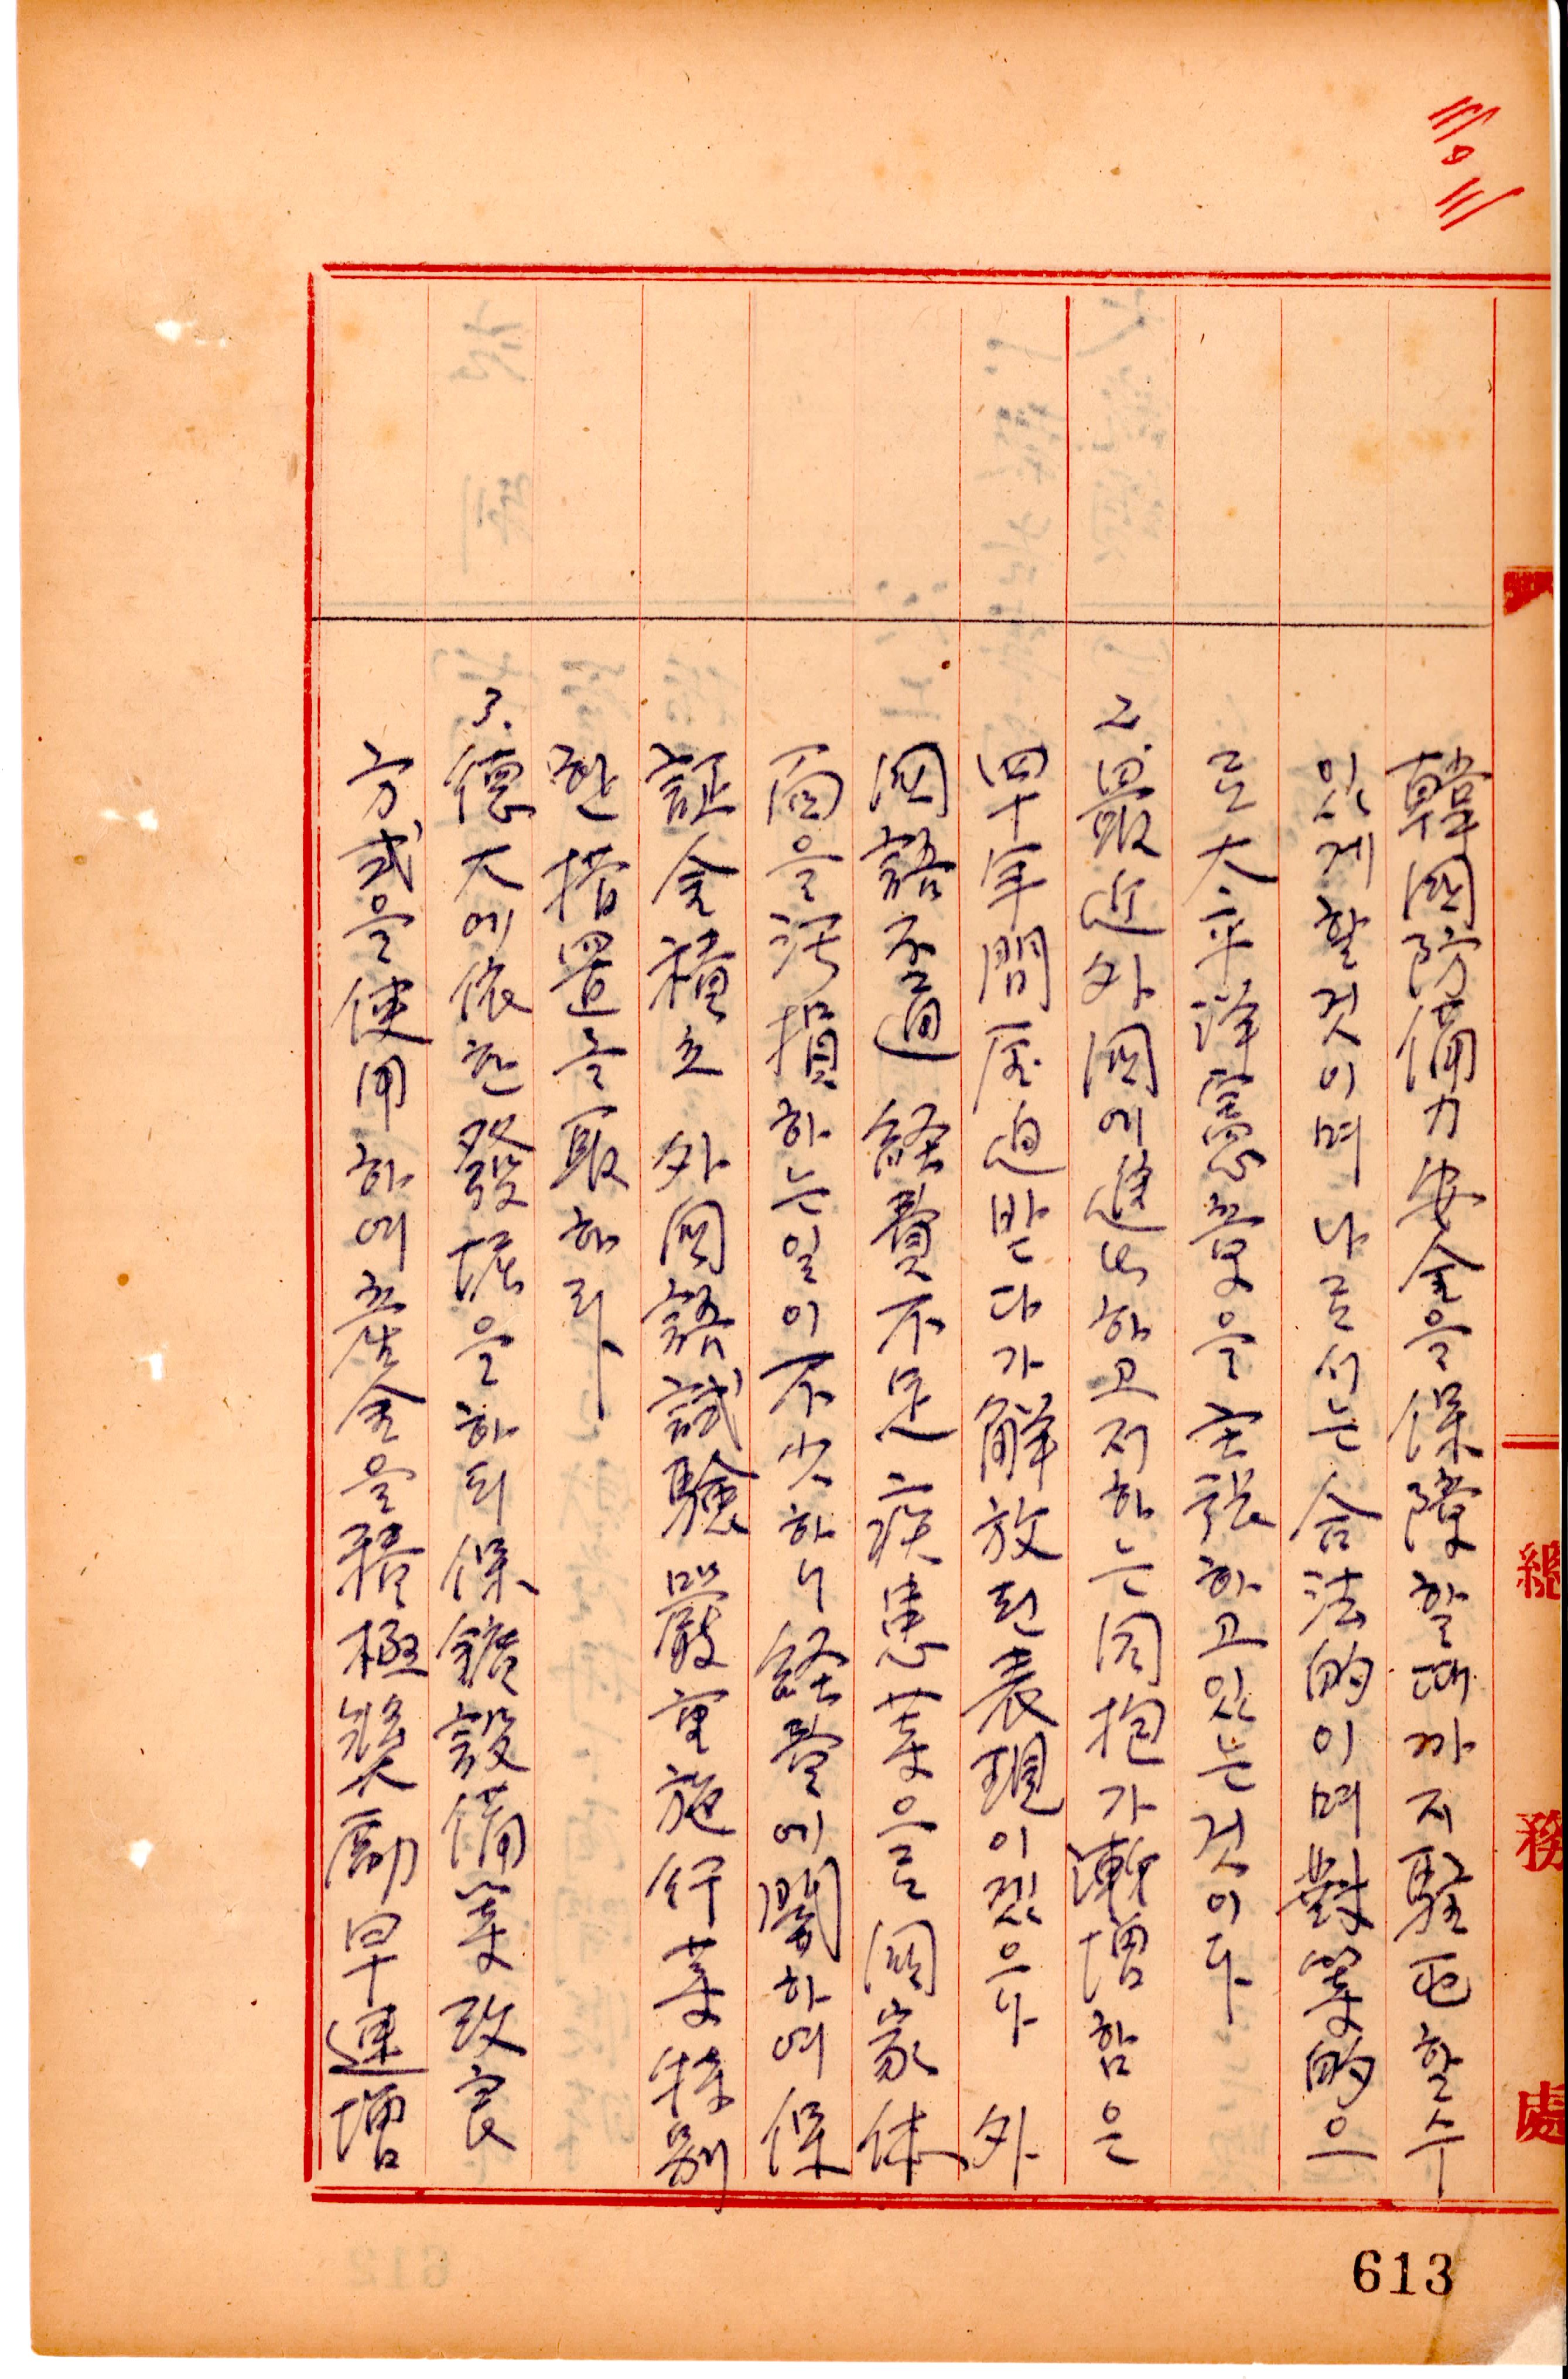 三〇三
韓國防備力安全을保障할때까지駐屯할수
있게할것이며나로서는合法的이며對策的으
로大平洋憲章을主張하고있는것이다
2. 最近外國에進出하고저하는同抱가漸增함은
四十年間압迫받다가解放된表現이겠으나 外
國語不通 経費不足 疾患等으로國家体
面을汚損하는일이不少하니経營에關하여保
証金積立 外國語試驗嚴重施行等特別
한措置를取하라
3. 德大에依한發掘을하되保鑛設備等改良
方式을使用하여産金을積極奬勵早速增
總務處
613